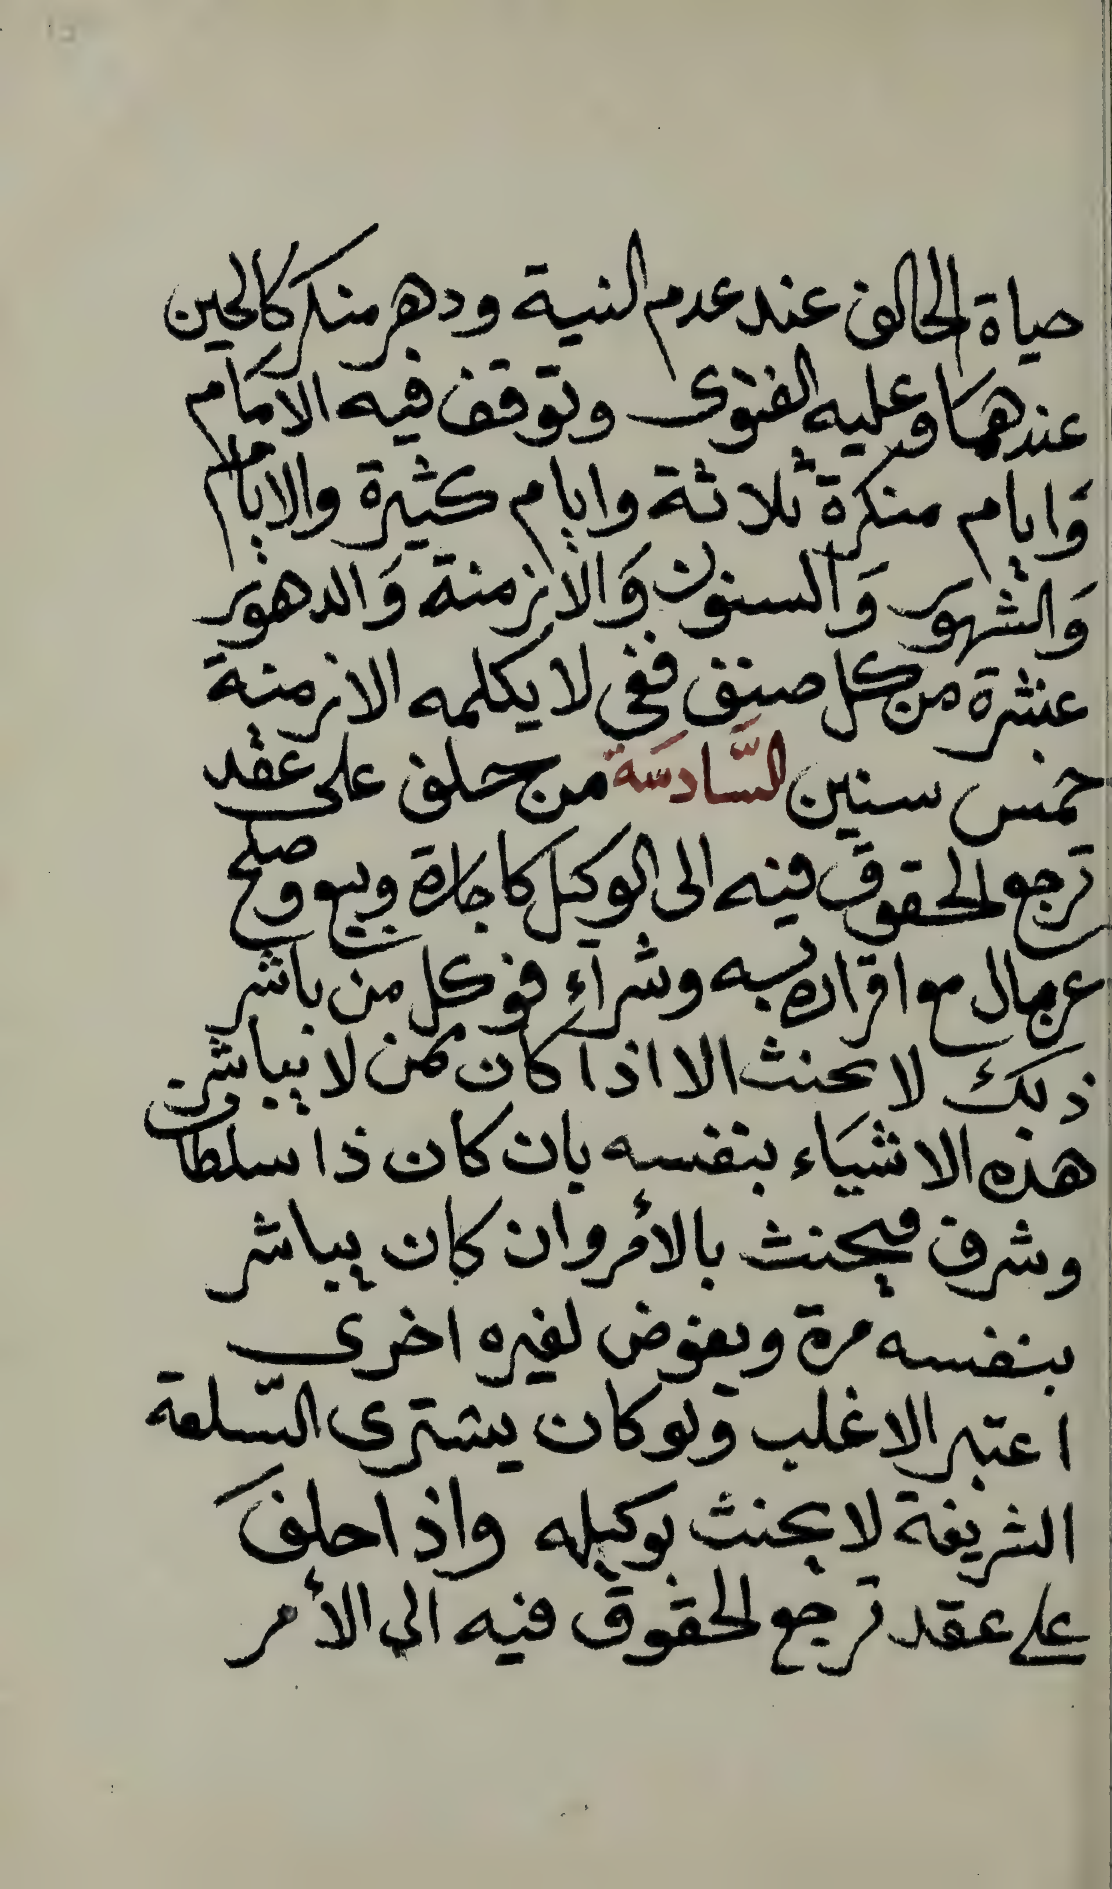 حياة الحالف عند عدم النية ودهر منكر كالحين
عندهما وعليه الفتوى وتوقف فيه الامام
وَايام منكرة ثلاثة وايام كثيرة والايام
وَالشهور وَالسنون وَالازمنة وَالدهوَر
عشرة من كل صنف ففي لا يكلمه الازمنة
خمس سنين السَّادسَة من حلف على عقد
ترجع الحقوق فيه الى الوكيل كاجارة وبيع وصلح
عن مال مع اقراره به وشرآءٍ فوكل من باشر
ذلك لا يحنث الا اذا كان ممن لا يباشر
هذه الاشيَاء بنفسه بان كان ذا سلطان
وشرف فيحنث بالأمر وان كان يباشر
بنفسه مرة ويفوض لغيره اخرى
اعتبر الاغلب ولو كان يشترى السّلعة
الشريفة لا يحنث بوكيله واذا حلفَ
على عقد ترجع الحقوق فيه الى الأمر